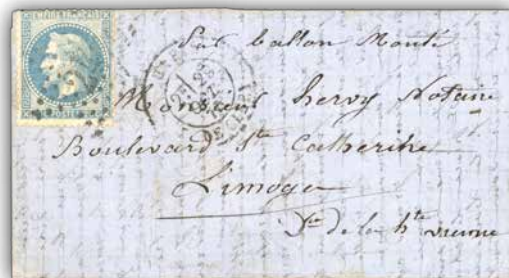 Par ballon Monté
Monsieur hervy Notaire
Boulevard Ste Catherine
Limoges
Dt de la hte vienne
POSTES